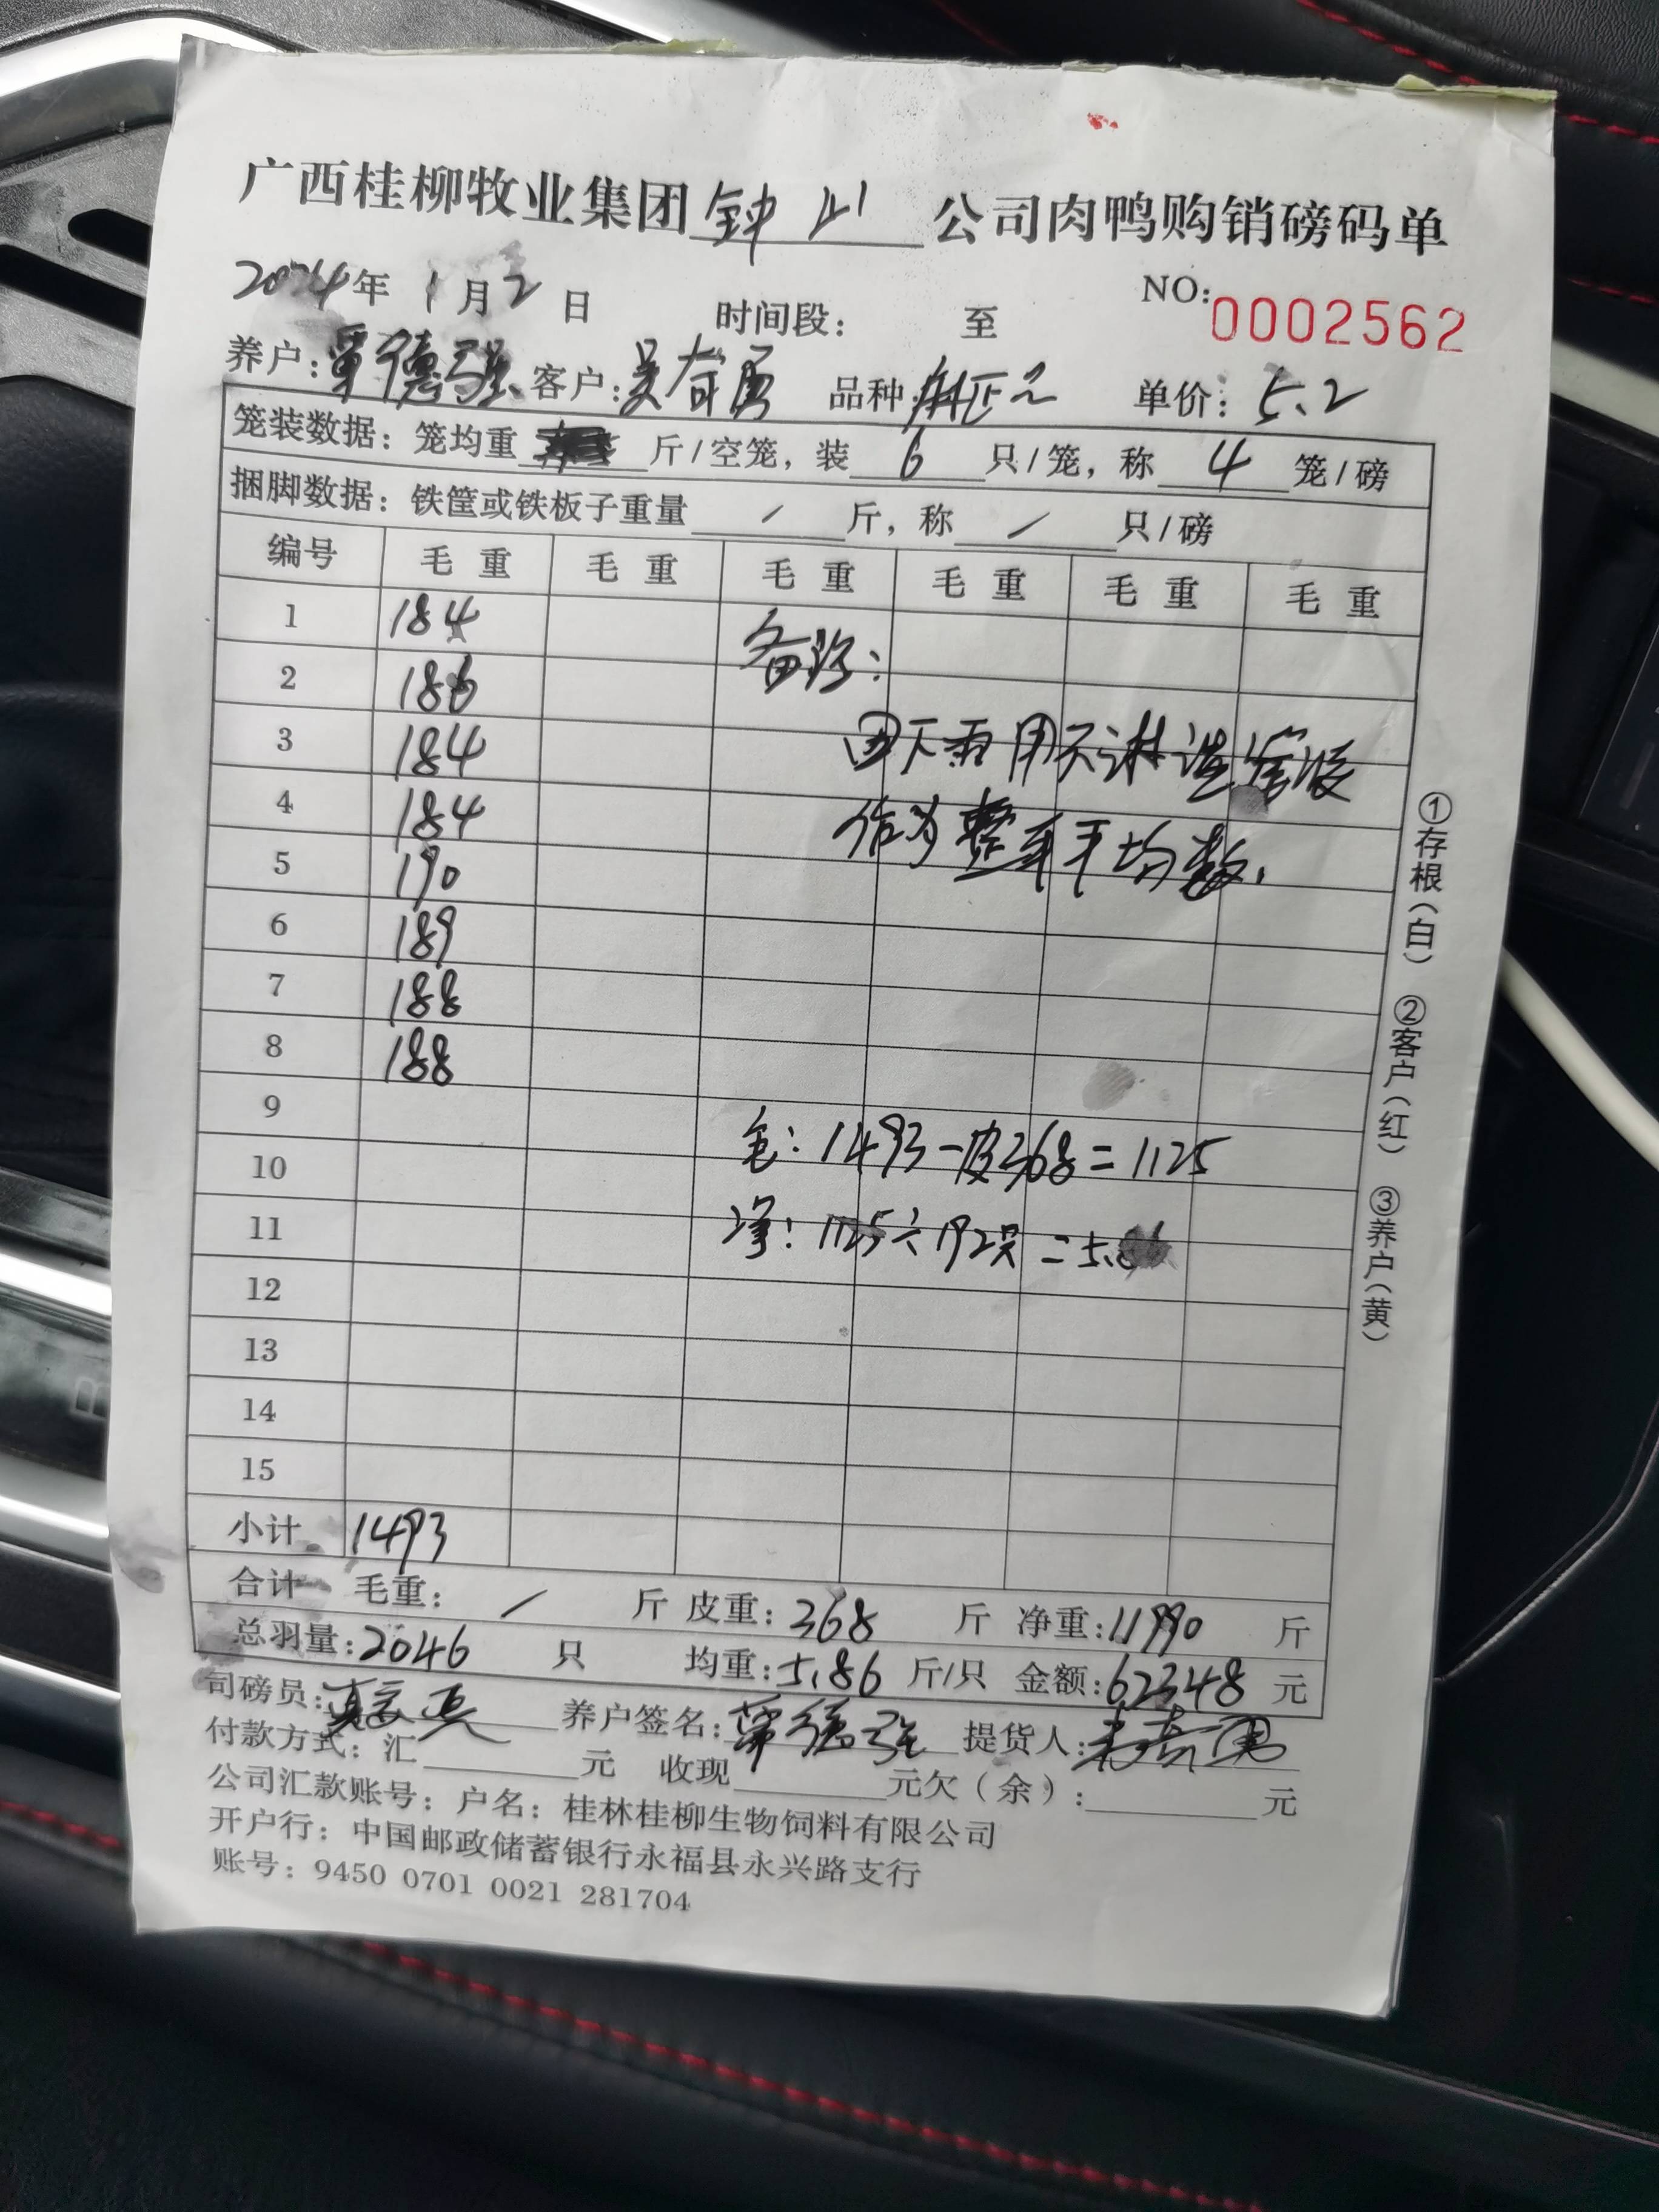 广西桂柳牧业集团 钟山 公司肉鸭购销磅码单
2024年 1月2日 时间段: 至 NO:0002562
养户:覃德强 客户: 品种: 单价:5.2
笼装数据:笼均重 斤/空笼,装 6 只/笼,称 4 笼/磅
捆脚数据:铁筐或铁板子重量 / 斤,称 / 只/磅
编号 毛重 毛重 毛重 毛重 毛重 毛重
1 184 备注:
2 186
3 184 因下雨
4 184 作为整车平均数.
5 190
6 189
7 188
8 188
9 毛:1493-皮368=1125
10
11 净:1125÷192只=5.86
12
13
14
15
小计 1493
合计 毛重: / 斤 皮重:368 斤 净重:11990 斤
总羽量:2046 只 均重:5.86 斤/只 金额:62348 元
司磅员: 养户签名:覃德强 提货人:
付款方式:汇 元 收现 元欠(余): 元
公司汇款账号:户名:桂林桂柳生物饲料有限公司
开户行:中国邮政储蓄银行永福县永兴路支行
账号:9450 0701 0021 281704
①存根(白) ②客户(红) ③养户(黄)